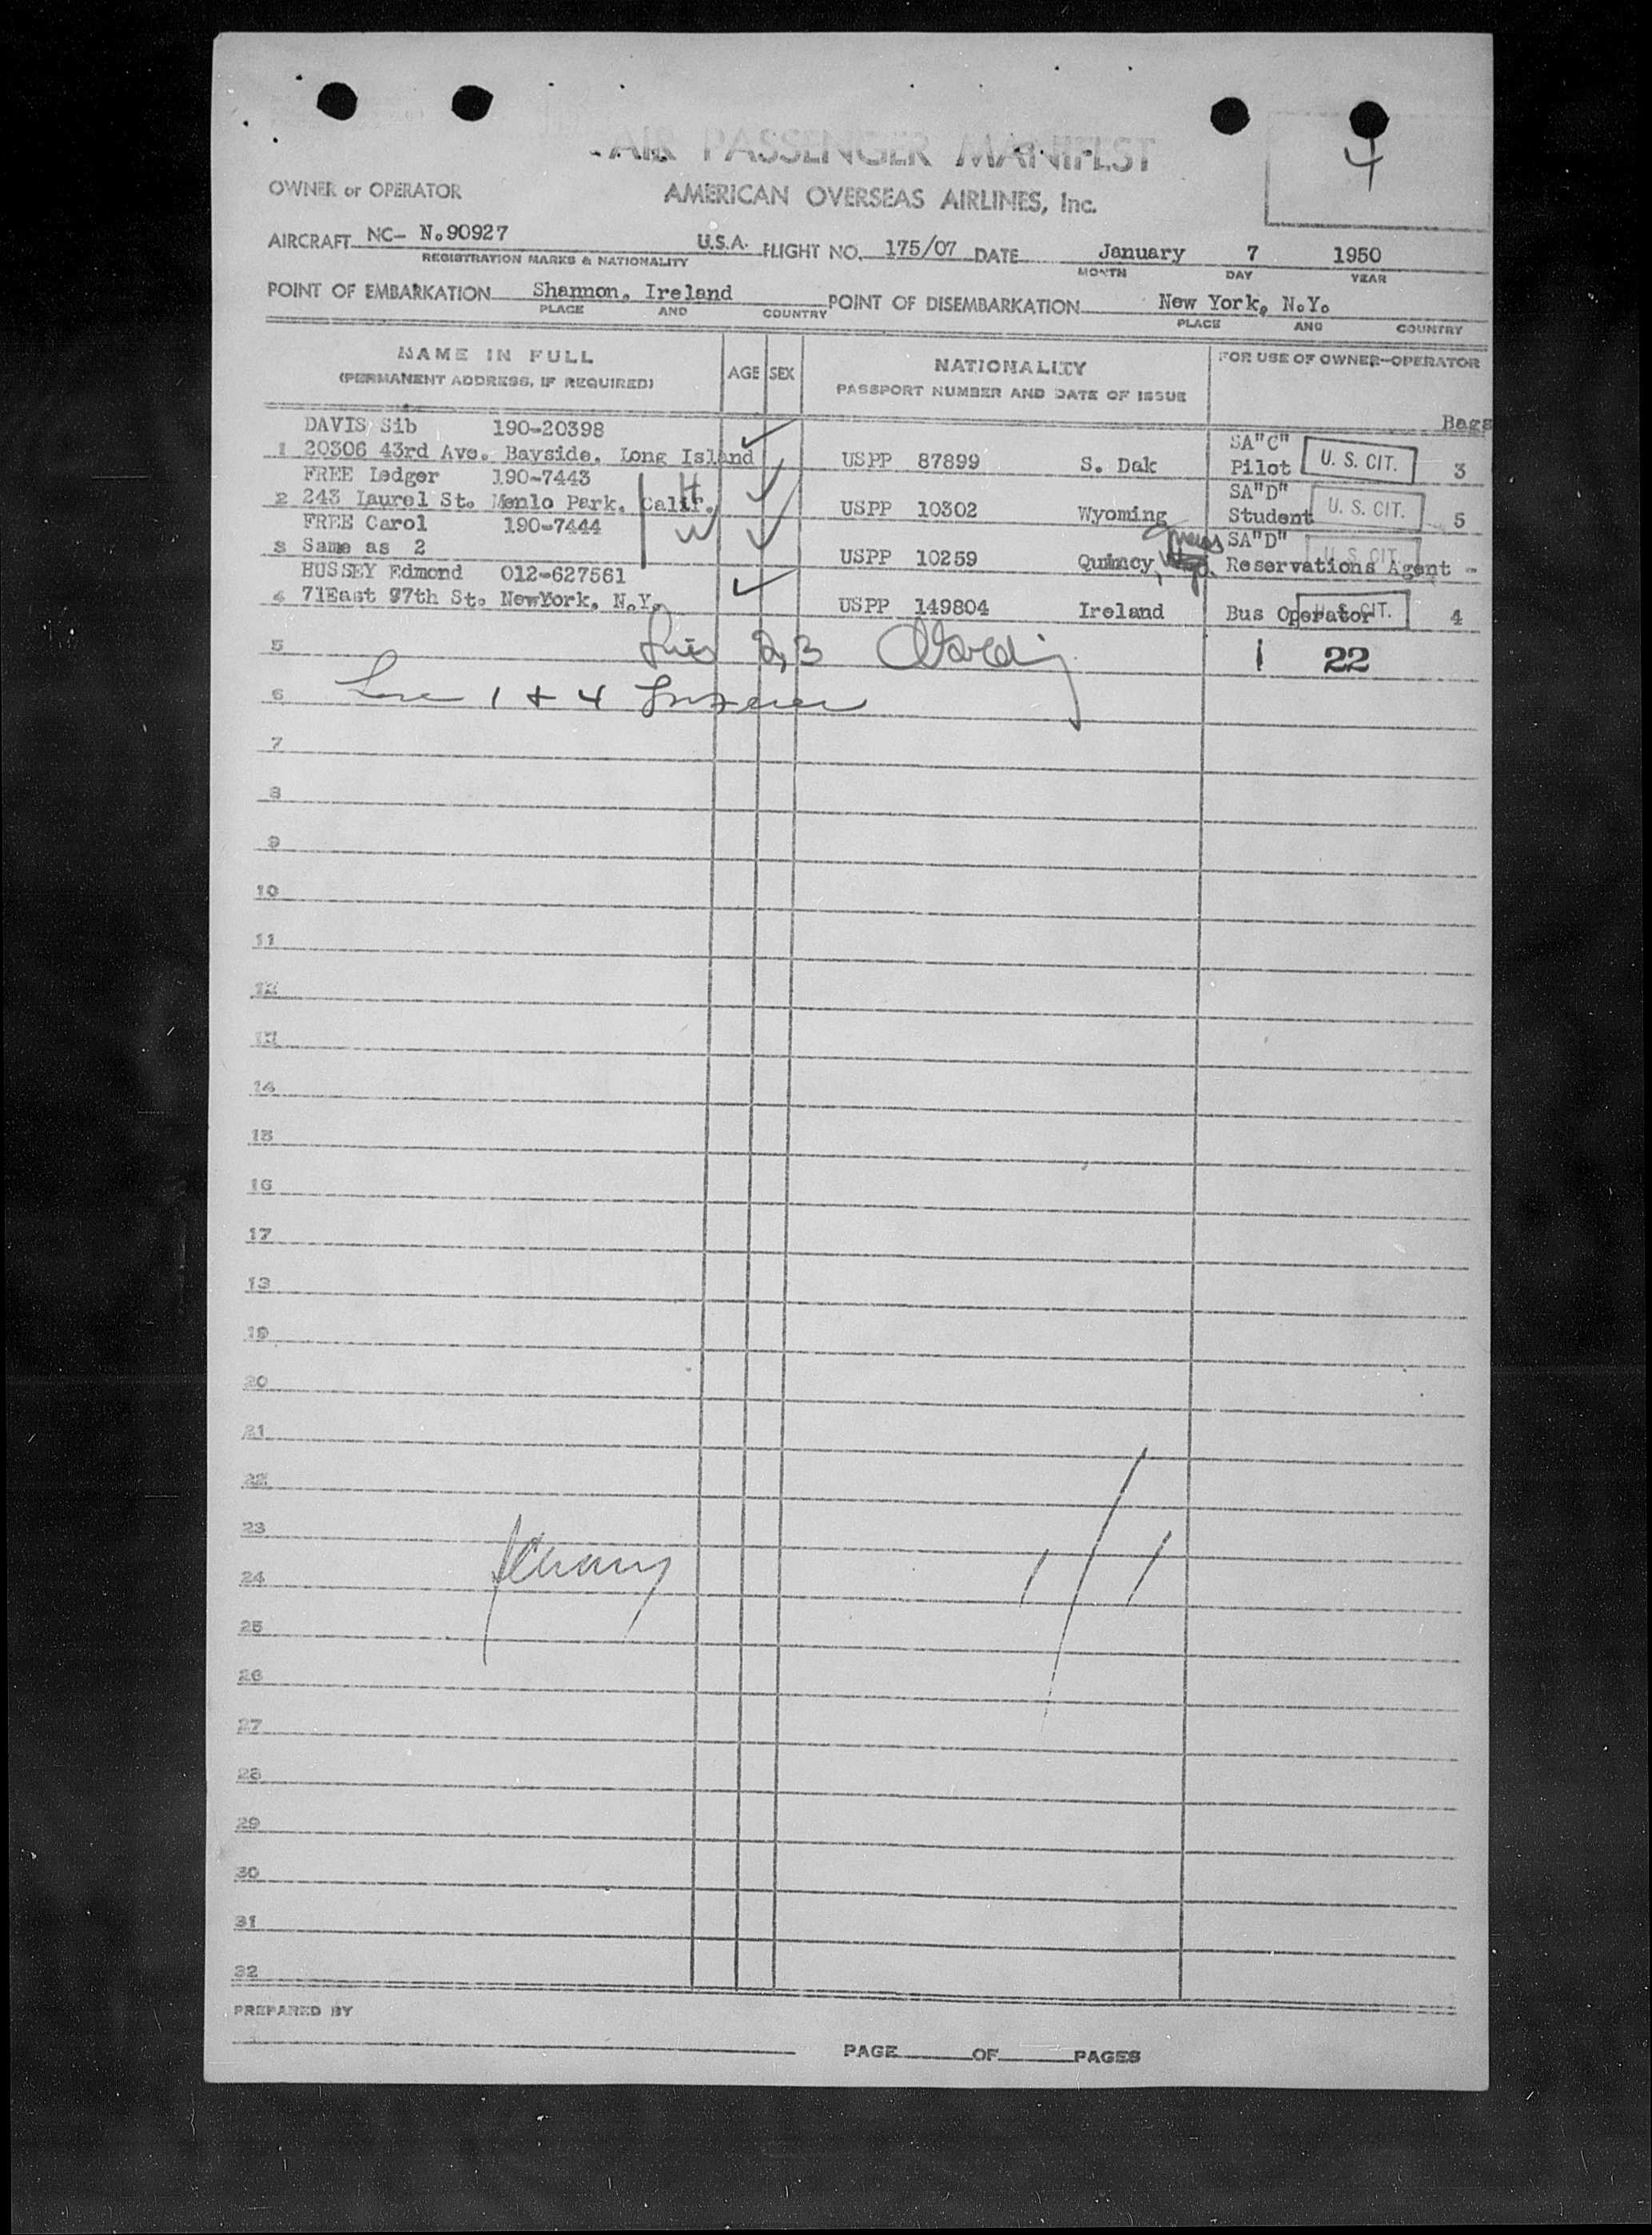 4
AIR PASSENGER MANIFEST
OWNER or OPERATOR AMERICAN OVERSEAS AIRLINES, Inc.
AIRCRAFT NC- N.90927 U.S.A. FLIGHT NO. 175/07 DATE January 7 1950
REGISTRATION MARKS & NATIONALITY MONTH DAY YEAR
POINT OF EMBARKATION Shannon, Ireland POINT OF DISEMBARKATION New York, N.Y.
PLACE AND COUNTRY PLACE AND COUNTRY
NAME IN FULL AGE SEX NATIONALITY FOR USE OF OWNER-OPERATOR
(PERMANENT ADDRESS, IF REQUIRED) PASSPORT NUMBER AND DATE OF ISSUE
Bags
DAVIS Sib 190-20398 SA"C"
1 20306 43rd Ave. Bayside, Long Island USPP 87899 S. Dak Pilot U. S. CIT. 3
FREE Ledger 190-7443 H SA"D"
2 243 Laurel St. Menlo Park, Calif. USPP 10302 Wyoming Student U. S. CIT. 5
FREE Carol 190-7444 W SA"D"
3 Same as 2 USPP 10259 Quincy, Reservations Agent U. S. CIT. -
HUSSEY Edmond 012-627561
4 71East 97th St. NewYork, N.Y. USPP 149804 Ireland Bus Operator U. S. CIT. 4
5 2,3 1 22
6 1 + 4
7
8
9
10
11
12
13
14
15
16
17
18
19
20
21
22
23
24
25
26
27
28
29
30
31
32
PREPARED BY
PAGE OF PAGES